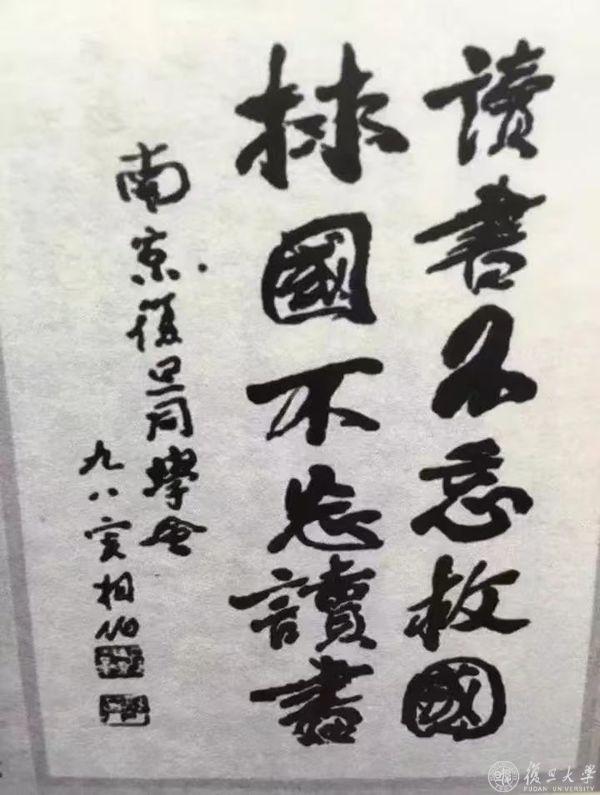 讀書不忘救國
捄國不忘讀書
南京復旦同學會
九八叟相伯
復旦大學
FUDAN UNIVERSITY